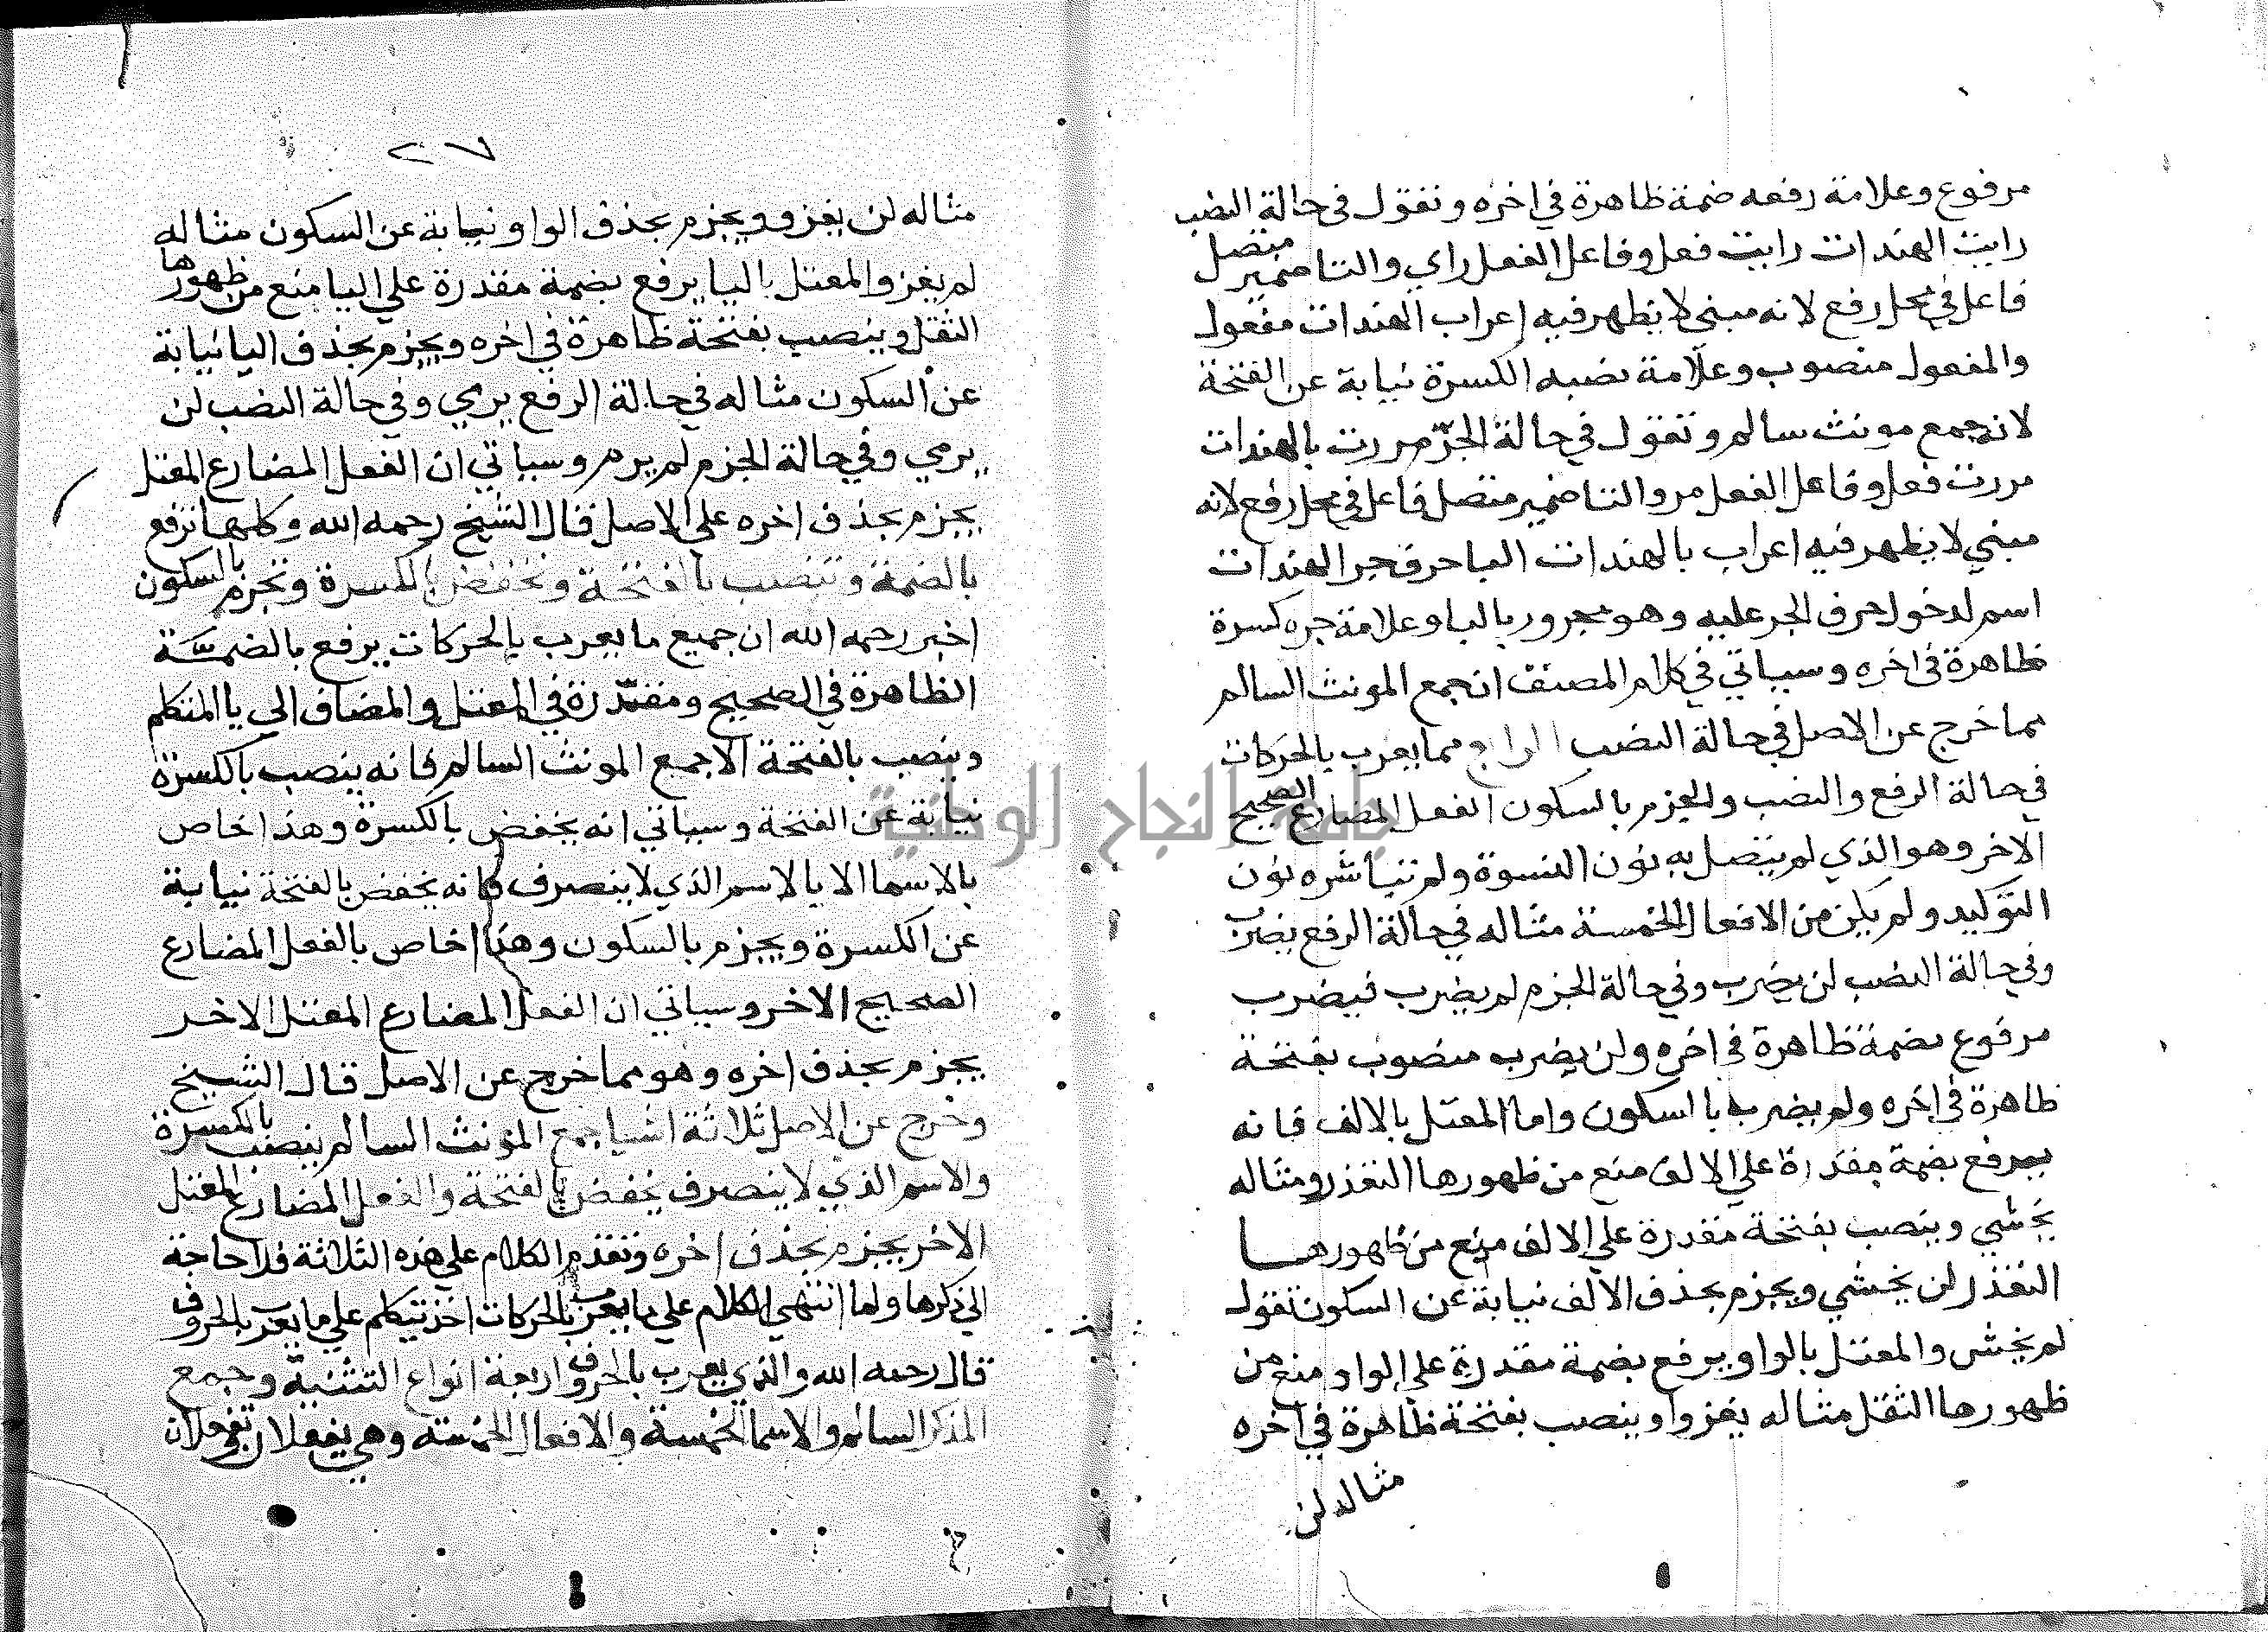 مرفوع وعلامة رفعه ضمة ظاهرة في اخره وتقول في حالة النصب
رايت الهندات رايت فعل وفاعل الفعل راي والتا ضمير متصل
فاعل في محل رفع لانه مبني لا يظهر فيه اعراب الهندات مفعول
والمفعول منصوب وعلامة نصبه الكسرة نيابة عن الفتحة
لانه جمع مونث سالم وتقول في حالة الجر مررت بالهندات
مررت فعل وفاعل الفعل مر والتا ضمير متصل فاعل في محل رفع لانه
مبني لا يظهر فيه اعراب بالهندات البا حرف جر الهندات
اسم لدخول حرف الجر عليه وهو مجرور بالبا وعلامة جره كسرة
ظاهرة في اخره وسياتي في كلام المصنف ان جمع المونث السالم
مما خرج عن الاصل في حالة النصب الرابع مما يعرب بالحركات
في حالة الرفع والنصب والجزم بالسكون الفعل المضارع الصحيح
الاخر وهو الذي لم يتصل به نون النسوة ولم تباشره نون
التوكيد ولم يكن من الافعال الخمسة مثاله في حالة الرفع يضرب
وفي حالة النصب لن يضرب وفي حالة الجزم لم يضرب فيضرب
مرفوع بضمة ظاهرة في اخره ولن يضرب منصوب بفتحة
ظاهرة في اخره ولم يضرب با لسكون واما المعتل بالالف فانه
يرفع بضمة مقدرة علي الالف منع من ظهورها التعذر ومثاله
يخشي وينصب بفتحة مقدرة علي الالف منع من ظهورها
التعذر لن يخشي ويجزم بحذف الالف نيابة عن السكون تقول
لم يخش والمعتل بالواو يرفع بضمة مقدرة علي الواو منع من
ظهورها الثقل مثاله يغزوا وينصب بفتحة ظاهرة في اخره
مثاله لن
٢٧
مثاله لن يغزو ويجزم بحذف الواو نيابة عن السكون مثاله
لم يغز والمعتل باليا يرفع بضمة مقدرة علي اليا منع من ظهورها
الثقل وينصب بفتحة ظاهرة في اخره ويجزم بحذف اليا نيابة
عن السكون مثاله في حالة الرفع يرمي وفي حالة النصب لن
يرمي وفي حالة الجزم لم يرم وسياتي ان الفعل المضارع المعتل
يجزم بحذف اخره علي الاصل قال الشيخ رحمه الله وكلها ترفع
بالضمة وتنصب بالفتحة وتخفض بالكسرة وتجزم بالسكون
اخبر رحمه الله ان جميع ما يعرب بالحركات يرفع بالضمة
الظاهرة في الصحيح ومقدرة في المعتل والمضاف الي يا المتكلم
وينصب بالفتحة الا جمع المونث السالم فانه ينصب بالكسرة
نيابة عن الفتحة وسياتي انه يخفض بالكسرة وهذا خاص
بالاسما الا يا لاسم الذي لا ينصرف فانه يخفض بالفتحة نيابة
عن الكسرة ويجزم بالسكون وهذا خاص بالفعل المضارع
الصحيح الاخر وسياتي ان الفعل المضارع المعتل الاخر
يجزم بحذف اخره وهو مما خرج عن الاصل قال الشيخ
وخرج عن الاصل ثلاثة اشيا جمع المونث السالم ينصب بالكسرة
والاسم الذي لا ينصرف يخفض بالفتحة والفعل المضارع المعتل
الاخر يجزم بحذف اخره وتقدم الكلام علي هذه الثلاثة فلا حاجة
الي ذكرها ولما انتهي الكلام علي ما يعرب بالحركات اخذ يتكلم علي ما يعرب بالحروف
قال رحمه الله والذي يعرب بالحروف اربعة انواع التثنية وجمع
المذكر السالم والاسما الخمسة والافعال الخمسة وهي يفعلان تفعلان
جامعة النجاح الوطنية